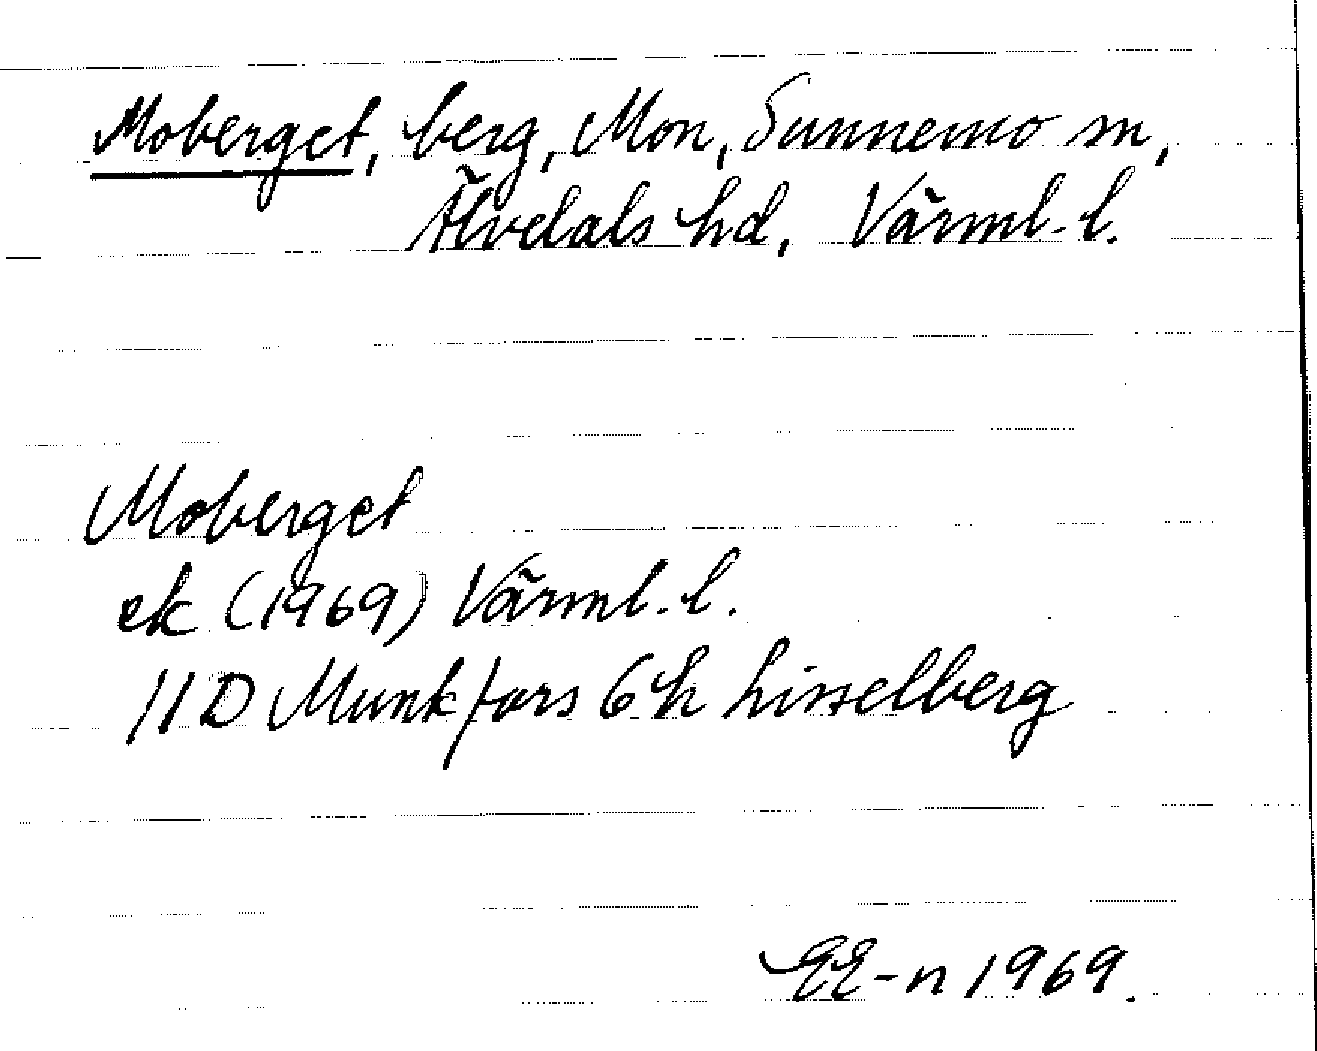 Moberget, berg, Mon, Sunnemo sn,
Älvdals hd, Värml. l.
Moberget
ek (1969) Värml. l.
11D Munkfors 6h Lisselberg
EE-n 1969.